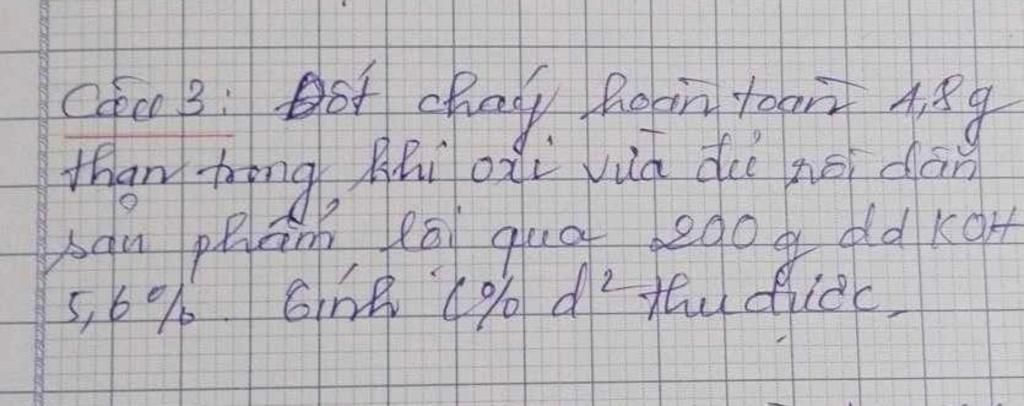 Câu 3: Đốt cháy hoàn toàn 4,8g
than trong khí oxi vừa đủ rồi dẫn
sản phẩm lội qua 200 g dd KOH
5,6%. Tính C% d² thu được.